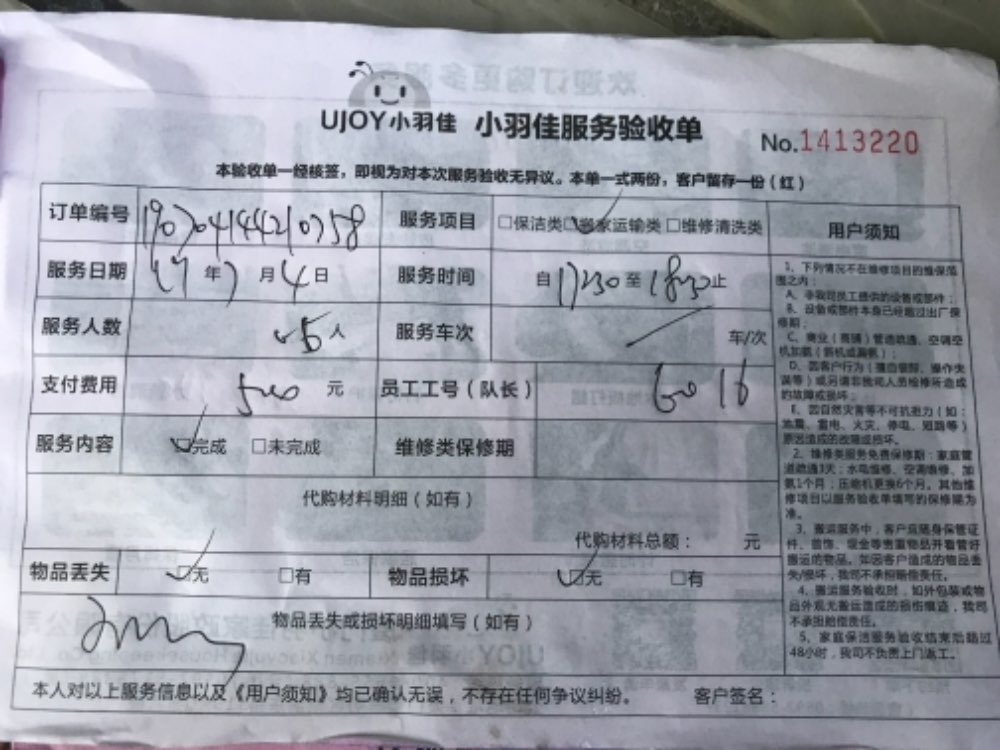 UJOY小羽佳 小羽佳服务验收单 No.1413220
本验收单一经核签，即视为对本次服务验收无异议。本单一式两份，客户留存一份（红）
订单编号 190704144210758 服务项目 □保洁类 □搬家运输类 □维修清洗类
服务日期 19年7月4日 服务时间 自1730至1830止
服务人数 5人 服务车次 车/次
支付费用 500元 员工工号（队长） 6016
服务内容 □完成 □未完成 维修类保修期
代购材料明细（如有）
代购材料总额： 元
物品丢失 □无 □有 物品损坏 □无 □有
物品丢失或损坏明细填写（如有）
本人对以上服务信息以及《用户须知》均已确认无误，不存在任何争议纠纷。 客户签名：
用户须知
1、下列情况不在维修项目的维保范
围之内：
A、非我司员工提供的设备或部件；
B、设备或部件本身已经超过出厂保
修期；
C、商业（商铺）管道疏通、空调空
机加氨（新机或漏氨）；
D、因客户行为（擅自做躲、操作失
误等）或另请非我司人员检修所造成
的故障或损坏；
E、因自然灾害等不可抗拒力（如：
地震、雷电、火灾、停电、短路等）
原因造成的故障或损坏。
2、维修类服务免费保修期：家庭管
道疏通3天；水电维修、空调维修、加
氨1个月；压缩机更换6个月。其他维
修项目以服务验收单填写的保修期为
准。
3、搬运服务中，客户应随身保管证
件、首饰、现金等贵重物品并看管好
搬运的物品。如因客户造成的物品丢
失/损坏，我司不承担赔偿责任。
4、搬运服务验收时，如外包装或物
品外观无搬运造成的损伤痕迹，我司
不承担赔偿责任。
5、家庭保洁服务验收结束后超过
48小时，我司不负责上门返工。